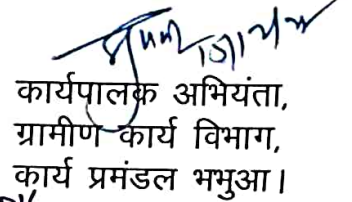 कार्यपालक अभियंता,
ग्रामीण कार्य विभाग,
कार्य प्रमंडल भभुआ।